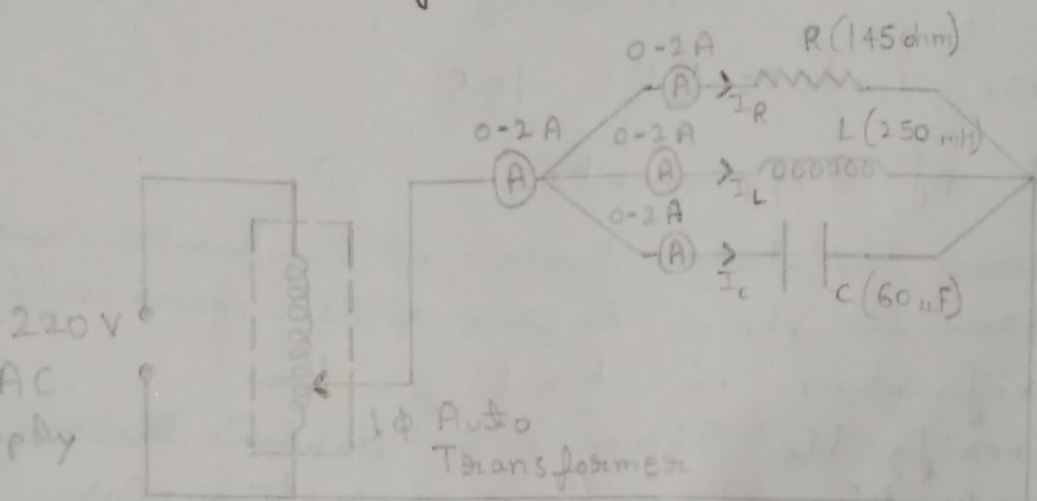 0-2 A
R (145 ohm)
A
I_R
0-2 A
0-2 A
L (250 mH)
A
A
I_L
0-2 A
A
I_C
C (60 uF)
220 V
AC
1ϕ Auto
Transformer